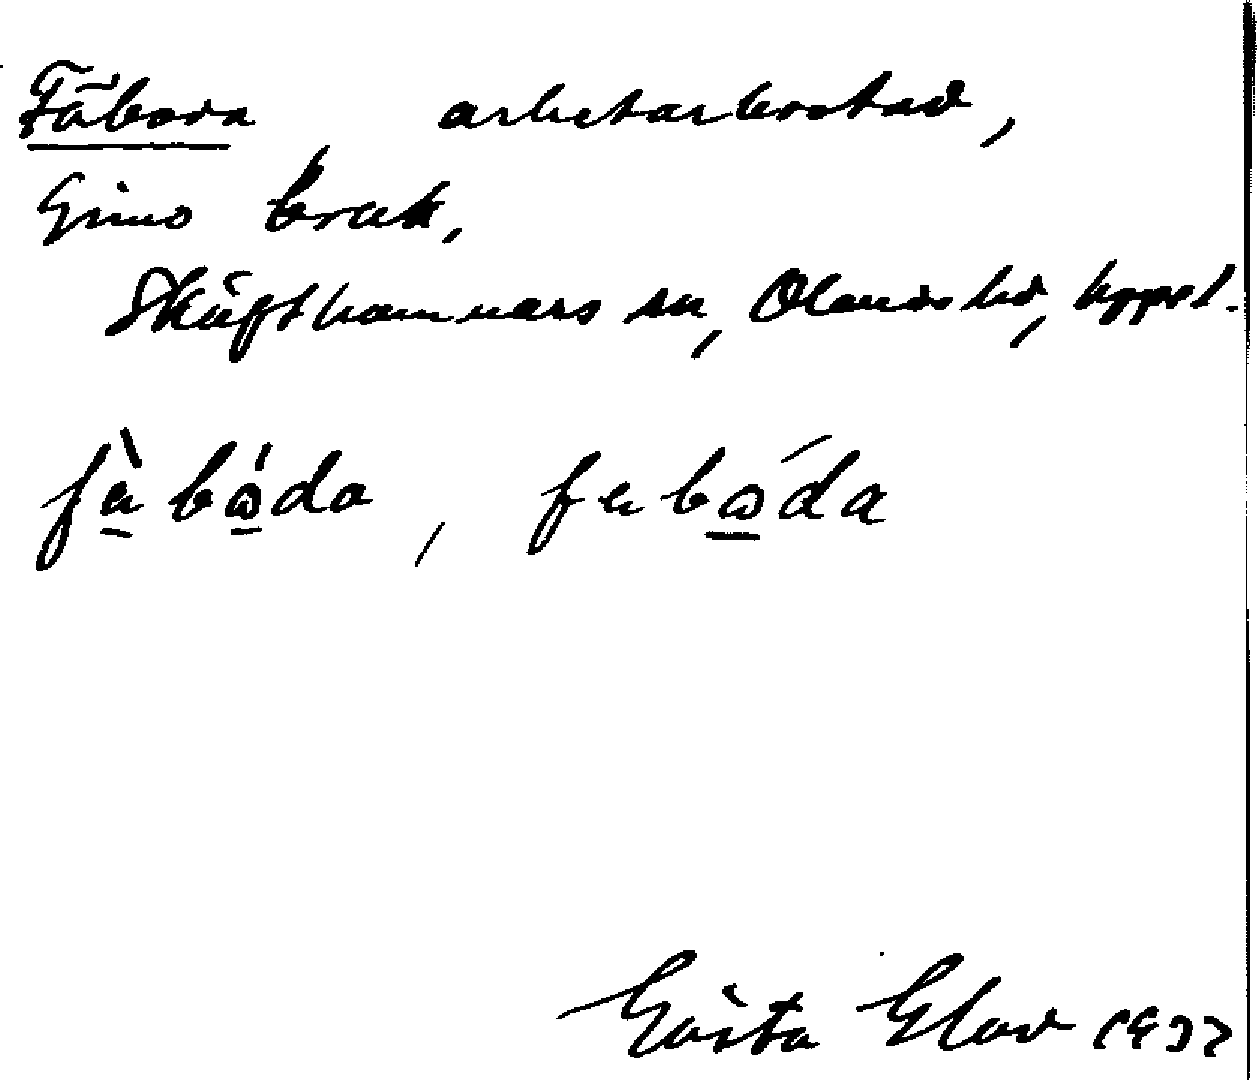 Fäboda arbetarbostad,
Gimo bruk,
Skäfthammars sn, Olands hd, Uppl.
fàbóda, fabóda
Gösta Elov 1937